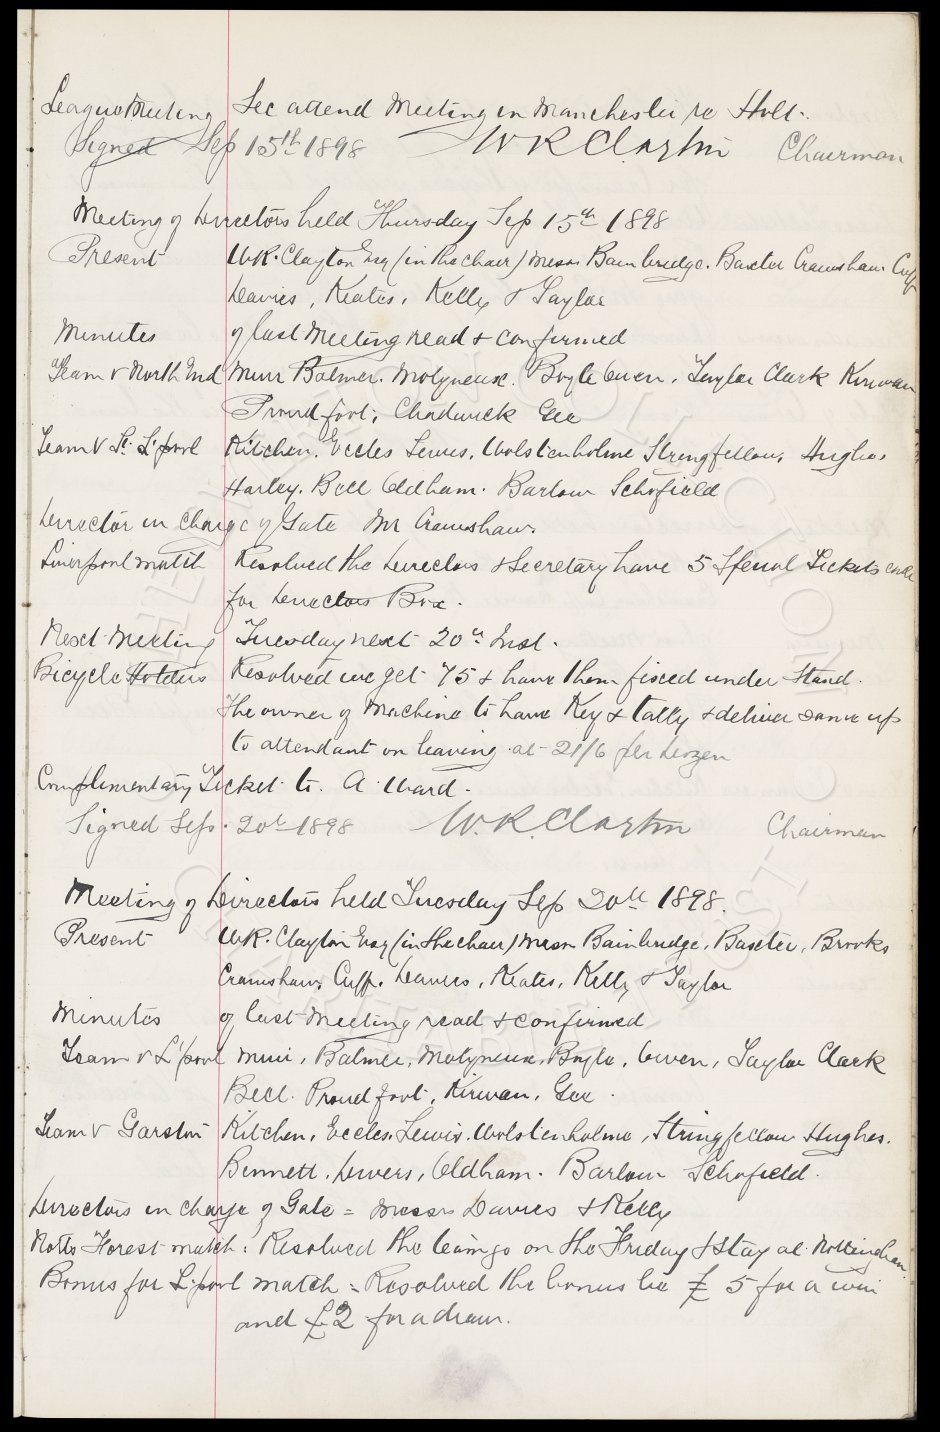 League Meeting Sec attend Meeting in Manchester re Holt.
Signed Sep 15th 1898 W R Clayton Chairman
Meeting of Directors held Thursday Sep 15th 1898
Present W.R. Clayton Esq (in the chair) Messrs Bainbridge. Baxter Crawshaw Cuff
Davies, Keates, Kelly & Taylor
Minutes of last Meeting read & confirmed
Team v North End Muir Balmer. Molyneux. Boyle Owen, Taylor Clark Kirwan
Proudfoot, Chadwick Gee
Team V St. L'pool Kitchen, Eccles Lewis, Wolstenholme Stringfellow, Hughes
Hartley. Bell Oldham. Barlow Schofield
Director in Charge of Gate Mr Crawshaw.
Liverpool match Resolved the Directors & Secretary have 5 Special Tickets each
for Directors Box.
Next Meeting Tuesday next 20th Inst.
Bicycle Holders Resolved we get 75 & have them fixed under Stand.
The owner of Machine to have Key & tally & deliver same up
to attendant on leaving at 21/6 per dozen
Complimentary Ticket to A Ward.
Signed Sep. 20th 1898 W.R. Clayton Chairman
Meeting of Directors held Tuesday Sep 20th 1898.
Present W.R. Clayton Esq (in the chair) Messrs Bainbridge, Baxter, Brooks
Crawshaw, Cuff. Davies, Keates, Kelly & Taylor
Minutes of last Meeting read & confirmed
Team v L'pool Muir, Balmer, Molyneux, Boyle, Owen, Taylor Clark
Bell. Proudfoot, Kirwan, Gee.
Team V Garston Kitchen, Eccles, Lewis, Wolstenholme, Stringfellow Hughes.
Bennett, Divers, Oldham. Barlow Schofield.
Directors in charge of Gate = Messrs Davies & Kelly
Notts Forest match: Resolved the team go on the Friday & Stay at Nottingham.
Bonus for L'pool match = Resolved the bonus be £5 for a win
and £2 for a draw.